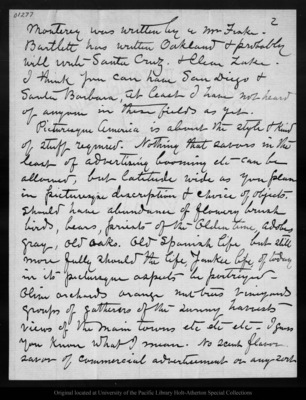 01277
2
Monterey was written by a Mr Drake.
Bartlett has written Oakland & probably
will write Santa Cruz. & Clear Lake.
I think you can have San Diego &
Santa Barbara, at least I have not heard
of anyone in these fields as yet.
Picturesque America is about the style & kind
of stuff required. Nothing that savors in the
least of advertising booming etc can be
allowed, but latitude wide as you please
in picturesque description & choice of objects.
Should have abundance of flowery brush
birds, bears, priests of the Olden time, adobes
gray, old oaks. Old Spanish life but still
more fully should the life Yankee life of today
in its picturesque aspects be portrayed -
Olive orchards orange nut trees vineyards
groups of gatherers of the sunny harvests
views of the main towns etc etc etc - I guess
you know what I mean. No scent flavor
savor of commercial advertisement or any sort
Original located at University of the Pacific Library Holt-Atherton Special Collections